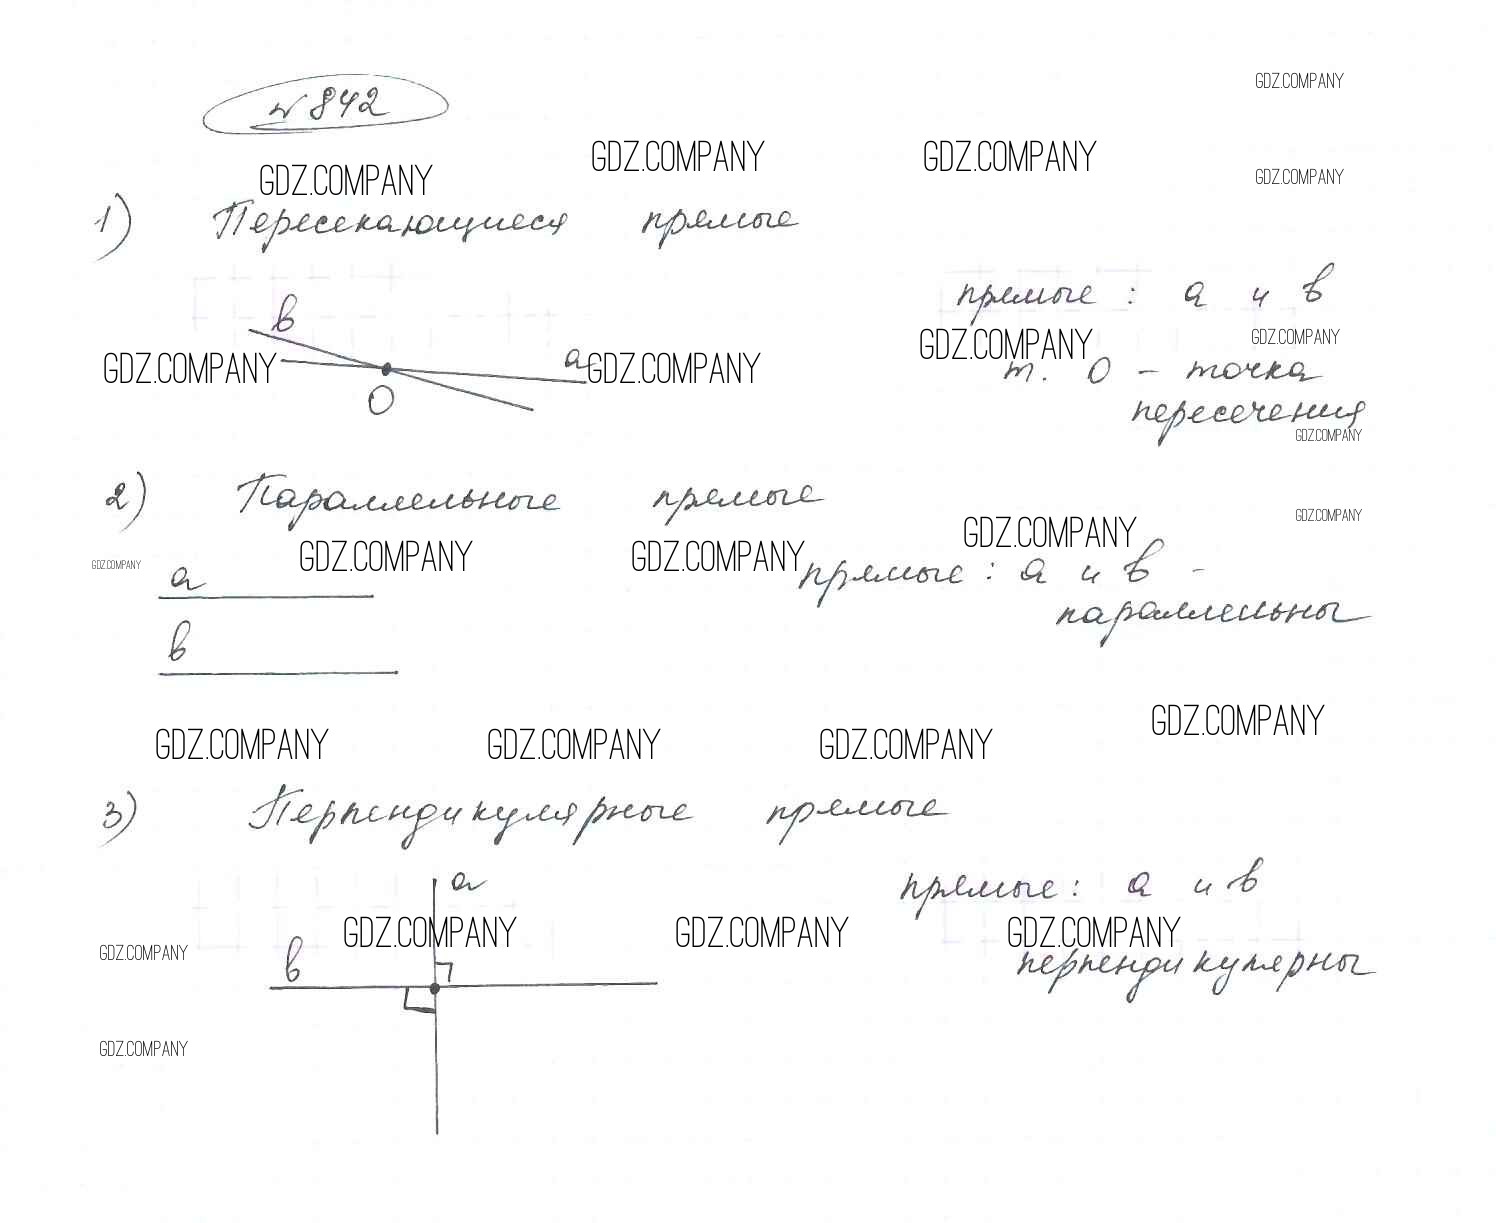 № 842
GDZ.COMPANY
GDZ.COMPANY GDZ.COMPANY
GDZ.COMPANY
GDZ.COMPANY
1) Пересекающиеся прямые
прямые: а и в
в
GDZ.COMPANY GDZ.COMPANY
GDZ.COMPANY а GDZ.COMPANY
т. О - точка
О
пересечения
GDZ.COMPANY
2) Параллельные прямые
GDZ.COMPANY
GDZ.COMPANY
GDZ.COMPANY GDZ.COMPANY GDZ.COMPANY
а
прямые: а и в -
параллельны
в
GDZ.COMPANY GDZ.COMPANY GDZ.COMPANY GDZ.COMPANY
3) Перпендикулярные прямые
а
прямые: а и в
GDZ.COMPANY GDZ.COMPANY GDZ.COMPANY
GDZ.COMPANY
в
перпендикулярны
GDZ.COMPANY